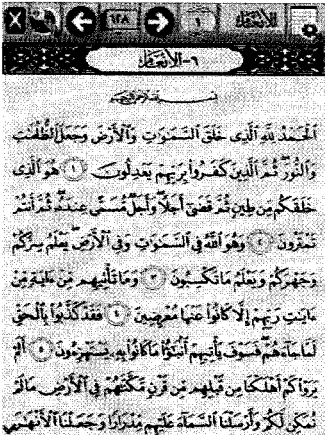 الأنعام ١ ١٢٨
٦-الأنعام
بسم الله الرحمن الرحيم
ٱلْحَمْدُ لِلَّهِ ٱلَّذِى خَلَقَ ٱلسَّمَٰوَٰتِ وَٱلْأَرْضَ وَجَعَلَ ٱلظُّلُمَٰتِ
وَٱلنُّورَ ثُمَّ ٱلَّذِينَ كَفَرُوا۟ بِرَبِّهِمْ يَعْدِلُونَ ١ هُوَ ٱلَّذِى
خَلَقَكُم مِّن طِينٍ ثُمَّ قَضَىٰٓ أَجَلًا وَأَجَلٌ مُّسَمًّى عِندَهُۥ ثُمَّ أَنتُمْ
تَمْتَرُونَ ٢ وَهُوَ ٱللَّهُ فِى ٱلسَّمَٰوَٰتِ وَفِى ٱلْأَرْضِ يَعْلَمُ سِرَّكُمْ
وَجَهْرَكُمْ وَيَعْلَمُ مَا تَكْسِبُونَ ٣ وَمَا تَأْتِيهِم مِّنْ ءَايَةٍ مِّنْ
ءَايَٰتِ رَبِّهِمْ إِلَّا كَانُوا۟ عَنْهَا مُعْرِضِينَ ٤ فَقَدْ كَذَّبُوا۟ بِٱلْحَقِّ
لَمَّا جَآءَهُمْ فَسَوْفَ يَأْتِيهِمْ أَنۢبَٰٓؤُا۟ مَا كَانُوا۟ بِهِۦ يَسْتَهْزِءُونَ ٥ أَلَمْ
يَرَوْا۟ كَمْ أَهْلَكْنَا مِن قَبْلِهِم مِّن قَرْنٍ مَّكَّنَّٰهُمْ فِى ٱلْأَرْضِ مَا لَمْ
نُمَكِّن لَّكُمْ وَأَرْسَلْنَا ٱلسَّمَآءَ عَلَيْهِم مِّدْرَارًا وَجَعَلْنَا ٱلْأَنْهَٰرَ